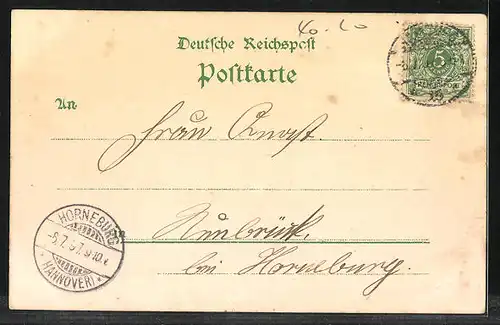 40.20
Deutsche Reichspost
Postkarte
5
An
Frau Ernst
Neubrück
bei Horneburg.
HORNEBURG
-6.7.97.9-10.V.
* (HANNOVER) *